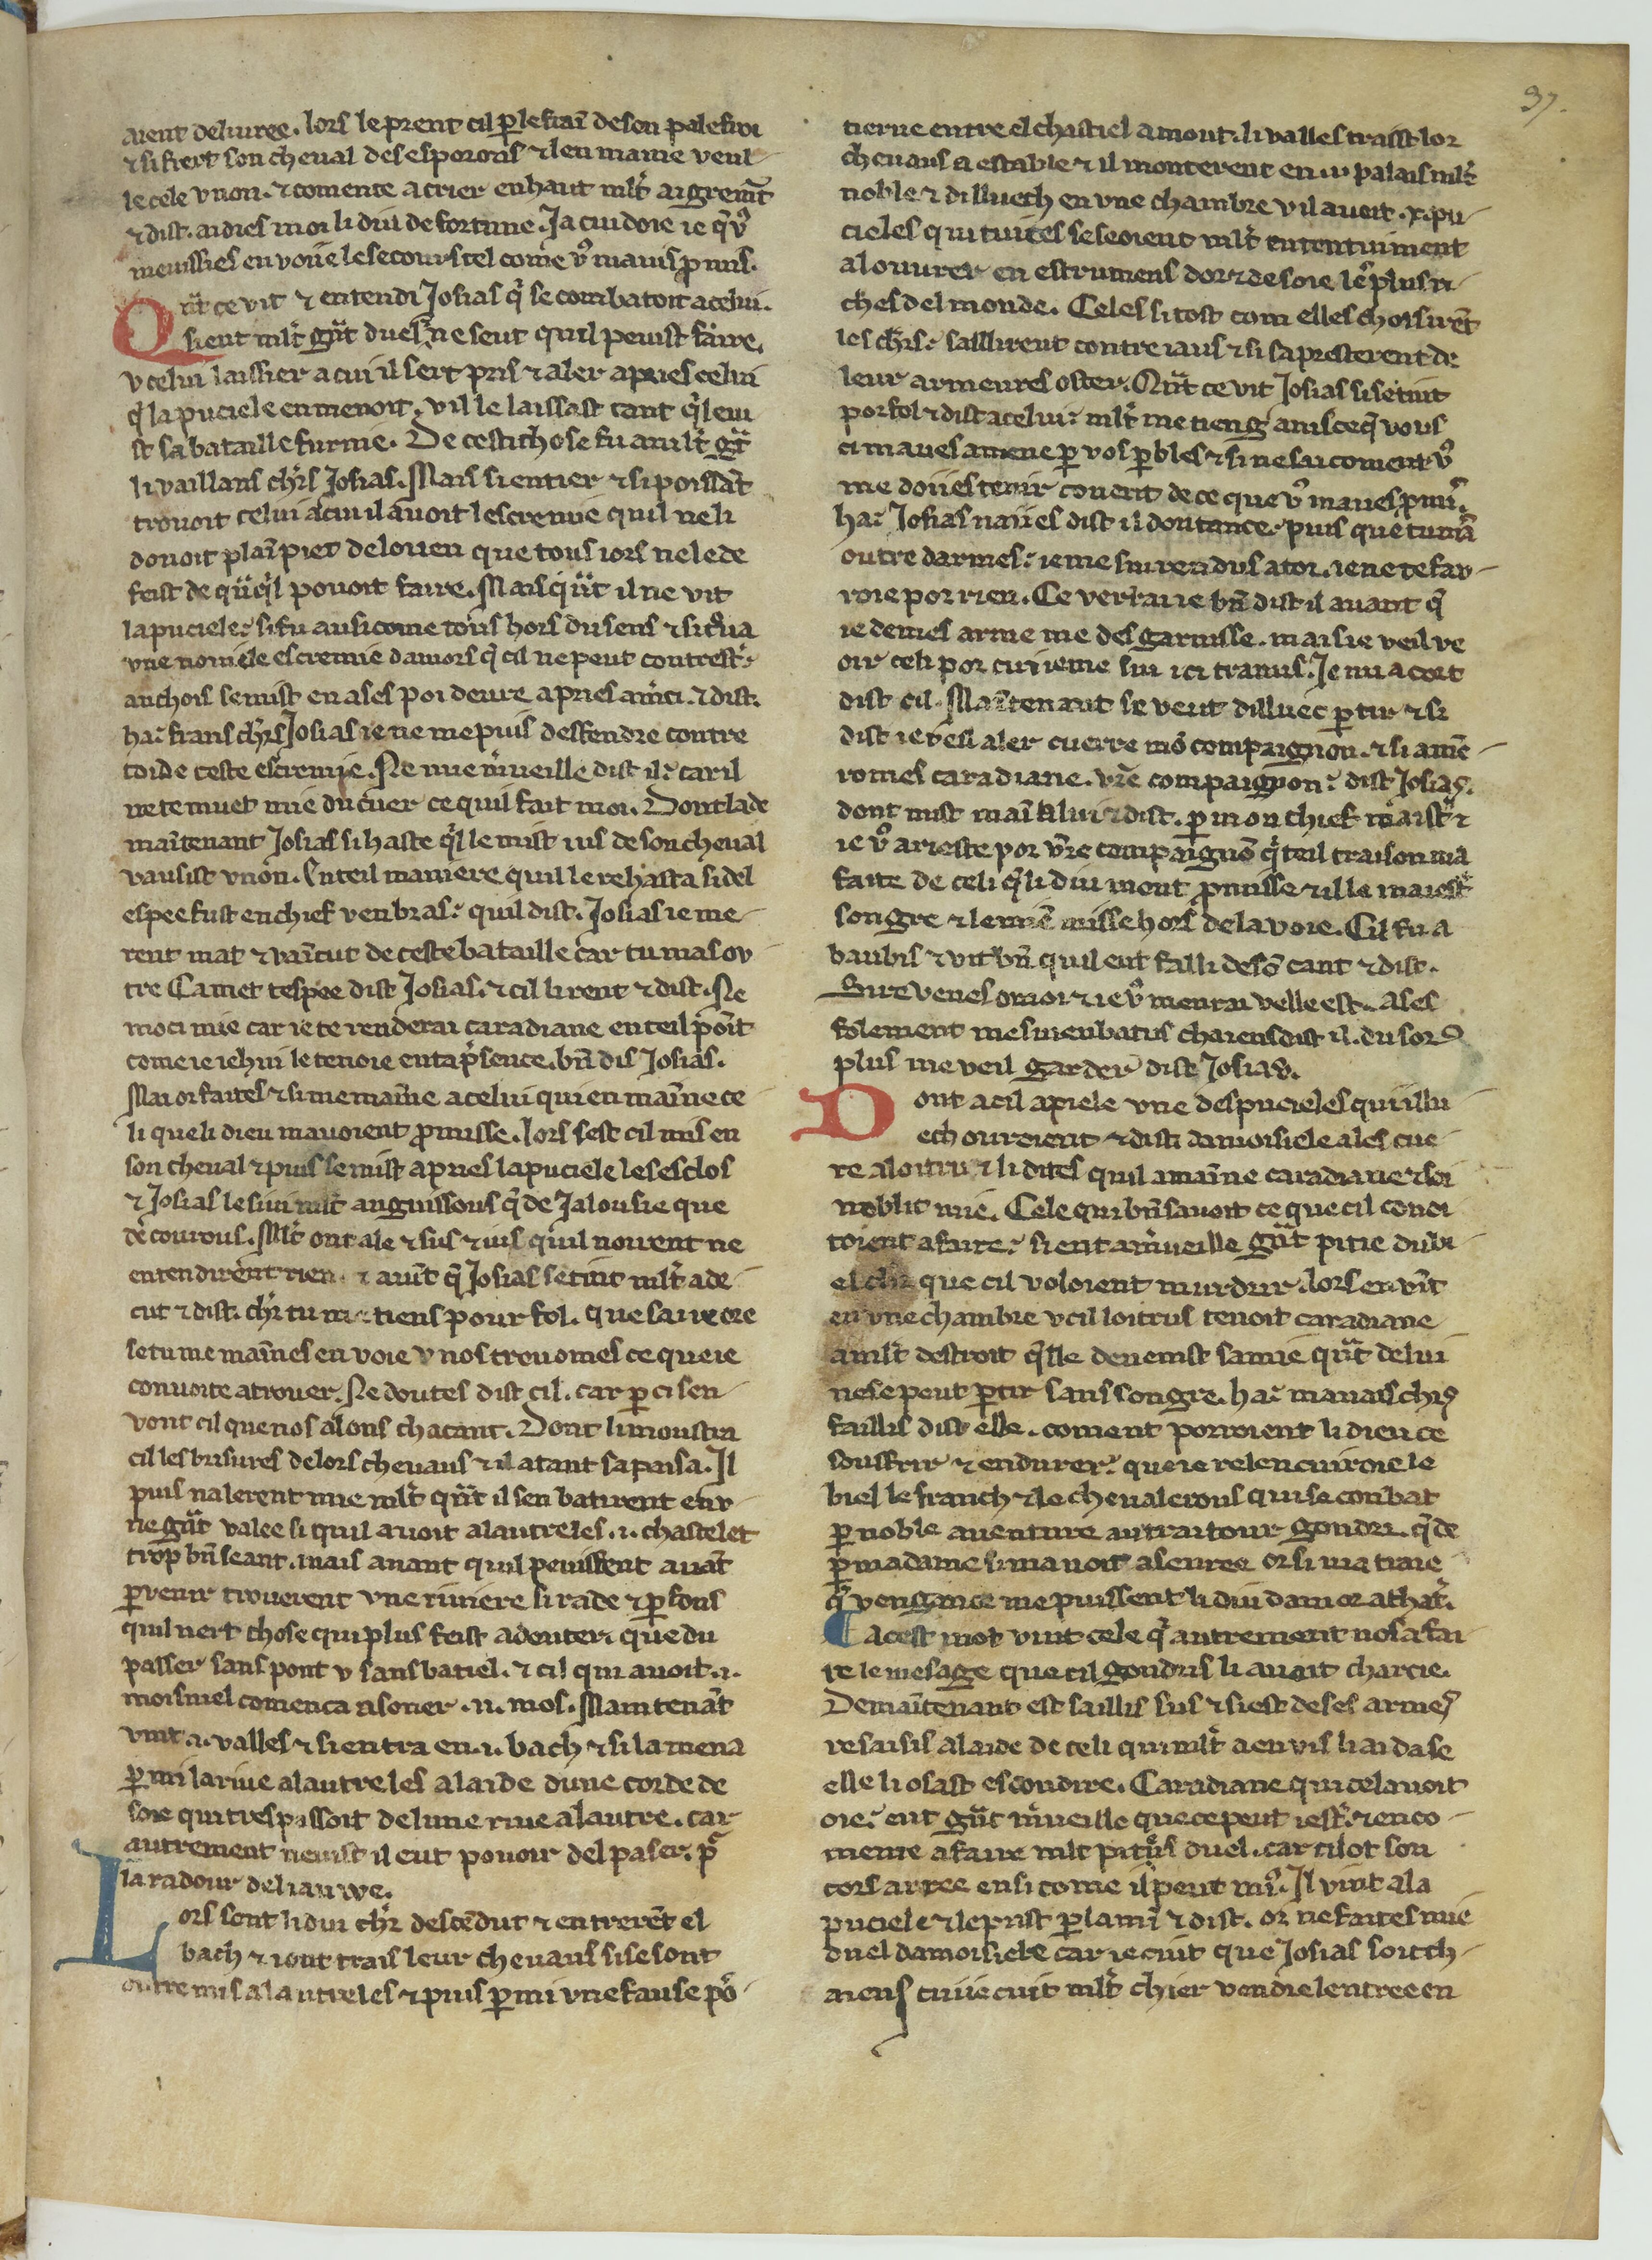 37.
aient deliuree. lors le prent cil ꝑ le frai᷃n de son palefroi
⁊ si fiert son cheual des esporons ⁊ len maine veul
le cele v non. ⁊ comence a crier en haut ml᷃t aigrem᷃t
⁊ dist. aidies moi li diu de fortune. Ja cuidoie ie q̃ vꝰ
meuissies en voiie le secours tel come vꝰ mauis ꝓmis.
Qn᷃t ce vit ⁊ entendi Josias q̃ se combatoit a celui.
si eut ml᷃t gñt duel. ne seut quil peuist faire.
v celui laissier a cui il sert pris ⁊ aler apries celui
q̃ la puciele enmenoit. v il le laissast tant q̃l eui
st sa bataille furnie. De cesti chose fu a ml᷃t gr᷃t
li vaillans ch᷃rs Josias. Mais si entier ⁊ si poissãt
trouoit celui a cui il auoit lescremie quil ne li
donoit plai᷃n piet de louen que tous iors ne le de
feist de qñq̃l pouoit faire. Mais qñt il ne vit
la puciele: si fu ausi come tous hors du sens ⁊ si tr᷃ua
vne nouiele escremie damors q̃ cil ne peut contrest᷃r
anchois se mist en ases poi deure apries am̃ci. ⁊ dist.
ha: frans ch᷃rs Josias ie ne me puis desfendre contre
toi de ceste escremie. Ne me m̃ueille dist il: car il
ne te muet mie du cuer ce quil fait moi. Dont la de
mai᷃ntenant Josias si haste q̃l le mist ius de son cheual
vausist v non. En teil maniere quil le rehasta si del
espee fust en chief v en bras: quil dist. Josias ie me
rent mat ⁊ vai᷃ncut de ceste bataille car tu mas ov
tre Camet tespee dist Josias. ⁊ cil li rent ⁊ dist. Ne
moci mie car ie te renderai caradiane en teil poi᷃nt
come ie iehui le tenoie en ta p̃sence. bn᷃ dis Josias.
Mai or faites ⁊ si me mai᷃nne a celui qui en mai᷃nne ce
li que li dieu mauoient ꝓmisse. lors sest cil mis en
son cheual ⁊ puis se mist apries la puciele les esclos
⁊ Josias le siui ml᷃t anguissous q̃ de Jalousie que
de courous. Ml᷃t ont ale ⁊ sus ⁊ ius quil noirent ne
entendirent rien. ⁊ aui᷃nt q̃ Josias se tint ml᷃t a de
cut ⁊ dist. ch᷃r tu me tiens pour fol. que sai ie ore
se tu me mai᷃nnes en voie v nos trouomes ce que ie
conuoite a trouer. Ne doutes dist cil. car ꝑ ci sen
vont cil que nos alons chacant. Dont li moustra
cil les brisures de lors cheuaus ⁊ il atant sapaisa. Il
puis nalerent mie ml᷃t qñt il sen batirent en v
ne gñt valee si quil auoit a lautre les .i. chastelet
trop bn᷃ seant. mais auant quil peuissent auãt
ꝑuenir trouerent vne riuiere si rade ⁊ ꝑfons
quil niert chose qui plus feist a douter que du
passer sans pont v sans batiel. ⁊ cil qui auoit .i.
moisniel comenca a soner .ii. mos. Maintenãt
vint .i. valles ⁊ si entra en .i. bach ⁊ si lamena
ꝑmi la riue a lautre les a laide dune corde de
soie qui trespassoit de lune riue a lautre. car
autrement neuist il eut pouoir del paser. p̃
la radour de liauwe.
Lors sont li dui ch᷃r descẽdut ⁊ entrerẽt el
bach ⁊ i ont trais leur cheuaus si se sont
outre mis a lautre les ⁊ puis ꝑmi vne fause põ
tierne entre el chastiel amont. li valles traist lor
cheuaus a estable ⁊ il monterent en .i. palais ml᷃t
noble ⁊ dilluech en vne chambre v il auoit .x. pu
cieles qui tuites se seoient ml᷃t ententiuiment
a lourer en estrumens dor ⁊ de soie les plus ri
ches del monde. Celes si tost com elles choisirẽt
les ch᷃rs: saillirent contre iaus ⁊ si sapresterent de
leur armeures oster. Qñt ce vit Josias si se tint
por fol ⁊ dist a celui: ml᷃t me tieng a nisce q̃ vous
ci maues amene ꝑ vos ꝑbles ⁊ si ne sai coment vꝰ
me doiies tenir couent de ce que vꝰ maues ꝓmis.
ha: Josias naiies dist il doutance. puis que tu mas
outre darmes: ie me sui rendus a toi. ie ne te fau
roie por rien. Ce verrai ie bn᷃ dist il auant q̃
ie de mes arme me desgarnisse. mais ie veil ve
oir celi por cui ie me sui ici trauus. Je mi acort
dist cil. Mai᷃ntenant se veut dilluec ꝑtir ⁊ si
dist ie veil aler cuerre mõ compaignon. ⁊ si amẽ
romes caradiane. vr᷃e compaignon: dist Josias.
dont mist mai᷃n a lui ⁊ dist. ꝑ mon chief maistre
ie vꝰ arieste por vr᷃e compaignõ q̃ teil traison ma
faite de celi q̃ li diu mont ꝓmisse ⁊ il le maiest᷃
son gre ⁊ le miẽ misse hors de la voie. Cil fu a
baubis ⁊ vit bn᷃ quil eut falli de sõ cant ⁊ dist.
Sire venes o moi ⁊ ie vꝰ menrai v elle est. Ases
folement me sui enbatus chaiens dist il. du sor
plus me veil garder dist Josias.
Dont a cil apiele vne des pucieles qui illu
ech ouroient ⁊ dist: damoisiele ales cue
re a loitru ⁊ li dites quil amai᷃nne caradiane ⁊ soi
noblit mie. Cele qui bn᷃ sauoit ce que cil cenoi
toient a faire: si eut a m̃ueille gñt pitie du bi
el ch᷃r que cil voloient murdrir. lors en vi᷃nt
en vne chambre v cil loitrus tenoit caradiane
a ml᷃t destroit q̃lle deuenist samie qñt de lui
ne se peut ꝑtir sans son gre. ha: mauais ch᷃rs
faillis dist elle. coment porroient li dieu ce
soussrir ⁊ endurer: que ie relencuiroie le
biel le franch ⁊ le cheualerous qui se conbat
ꝑ noble auenture au traitour gondri. q̃ de
ꝑ ma dame si mauoit aseuree or si ma traie
q̃ vengance me puissent li diu damor achat᷃.
¶ A cest mot vint cele q̃ autrement nosa fai
re le mesage que cil gondris li auoit charcie.
De mai᷃ntenant est saillis sus ⁊ si est de ses armes
resaisis a laide de celi qui ml᷃t a envis li aida se
elle li osast escondire. Caradiane qui cel auoit
oie: eut gñt m̃ueille que ce peut iestr᷃. ⁊ enco
mence a faire ml᷃t piteus duel. car cil ot son
cors arree ensi come il peut miꝰ. Il vint a la
puciele ⁊ le prist ꝑ la mai᷃n ⁊ dist. or ne faites mie
duel damoisiele car ie cuit que Josias soit ch
aiens cui ie cuit ml᷃t chier vendre lentree en